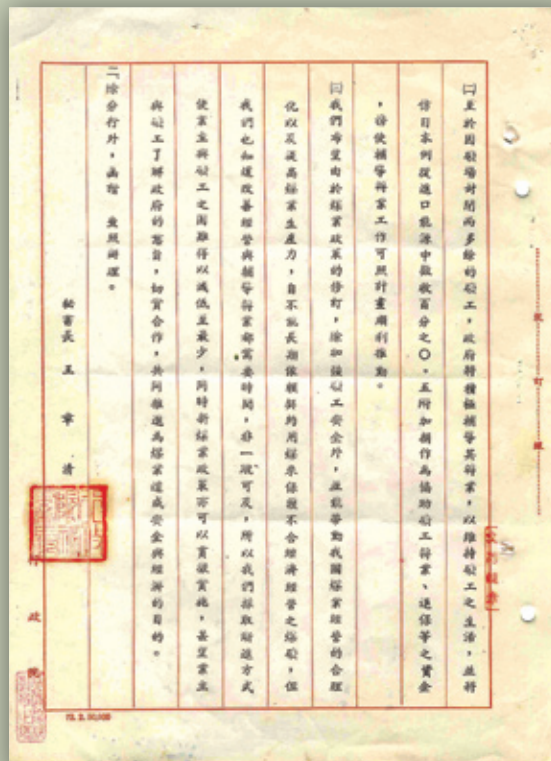 ㈡至於因礦場封閉而多餘的礦工，政府將積極輔導其轉業，以維持礦工之生活，並將
仿日本例從進口能源中徵收百分之〇．五附加捐作為協助礦工轉業、退保等之資金
，務使輔導轉業工作可照計畫順利推動。
㈢我們希望由於煤業政策的修訂，除加強礦工安全外，並能帶動我國煤業經營的合理
化以及提高煤業生產力，自不能長期依賴契約用煤來保護不合經濟經營之煤礦，但
我們也知道改善經營與輔導轉業都需要時間，非一蹴可及，所以我們採取漸進方式
使業主與礦工之困難得以減低至最少，同時新煤業政策亦可以貫徹實施，甚望業主
與礦工了解政府的意旨，切實合作，共同推進為煤業達成安全與經濟的目的。
二、除分行外，函請　查照辦理。
秘書長　王　章　清
行政院
裝訂線
72. 2. 50,000